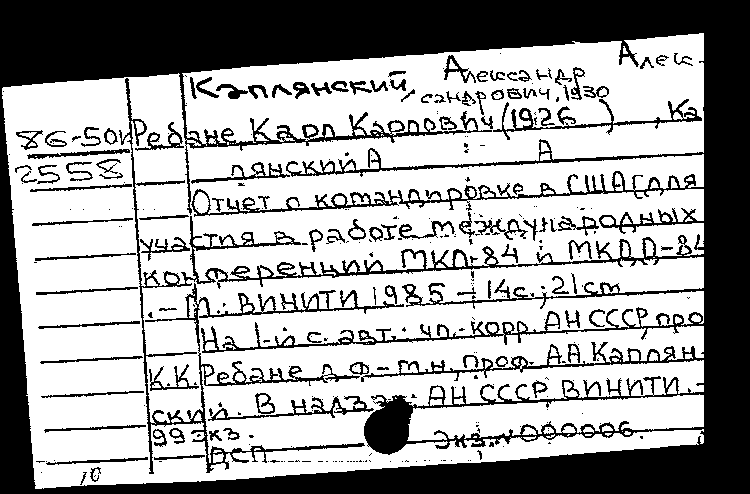 Каплянский, Александр Алек-
сандрович, 1930
86-50и Ребане, Карл Карлович (1926 ) , Ка
2558 лянский, А А
Отчет о командировке в США [для
участия в работе международных
конференций МКЛ-84 и МКДД-84
.-М.: ВИНИТИ, 1985 - 14с.; 21 cm
На 1-й с. авт.: чл.-корр. АН СССР, про
К.К. Ребане, д.ф.-м.н., проф. А.А. Каплян-
ский. В надзаг.: АН СССР, ВИНИТИ. -
99 экз. Экз. N 000006.
ДСП.
10